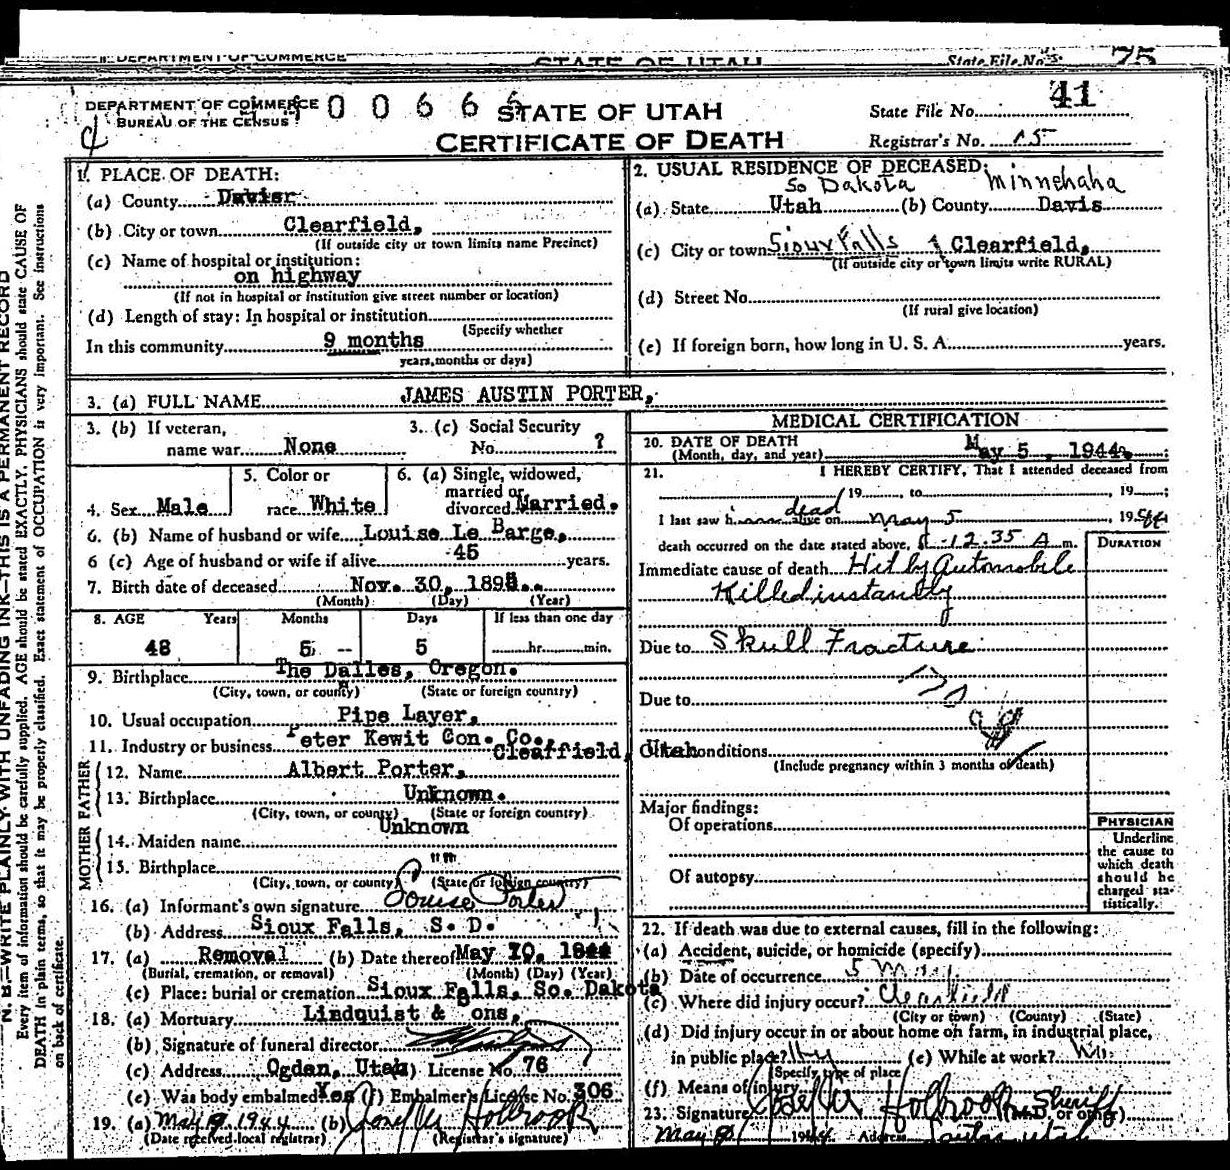 DEPARTMENT OF COMMERCE STATE OF UTAH State File No. 75
DEPARTMENT OF COMMERCE
BUREAU OF THE CENSUS
STATE OF UTAH
CERTIFICATE OF DEATH
State File No. 41
Registrar's No. 15
N. B.—WRITE PLAINLY, WITH UNFADING INK—THIS IS A PERMANENT RECORD
Every item of information should be carefully supplied. AGE should be stated EXACTLY. PHYSICIANS should state CAUSE OF
DEATH in plain terms, so that it may be properly classified. Exact statement of OCCUPATION is very important. See instructions
on back of certificate.
1. PLACE OF DEATH:
(a) County Davis
(b) City or town Clearfield,
(If outside city or town limits name Precinct)
(c) Name of hospital or institution:
on highway
(If not in hospital or institution give street number or location)
(d) Length of stay: In hospital or institution
(Specify whether
In this community 9 months
years, months or days)
2. USUAL RESIDENCE OF DECEASED:
So Dakota Minnehaha
(a) State Utah (b) County Davis
(c) City or town Sioux Falls Clearfield,
(If outside city or town limits write RURAL)
(d) Street No.
(If rural give location)
(e) If foreign born, how long in U. S. A. years.
3. (a) FULL NAME JAMES AUSTIN PORTER,
3. (b) If veteran,
name war None
3. (c) Social Security
No. ?
4. Sex Male
5. Color or
race White
6. (a) Single, widowed,
married or
divorced Married.
6. (b) Name of husband or wife Louise Le Barge,
6 (c) Age of husband or wife if alive 45 years.
7. Birth date of deceased Nov. 30, 1895.
(Month) (Day) (Year)
8. AGE Years Months Days If less than one day
48 5 5 hr. min.
9. Birthplace The Dalles, Oregon.
(City, town, or county) (State or foreign country)
10. Usual occupation Pipe Layer,
11. Industry or business Peter Kewit Con. Co.,
Clearfield, Utah
FATHER
12. Name Albert Porter,
13. Birthplace Unknown.
(City, town, or county) (State or foreign country)
MOTHER
14. Maiden name Unknown
15. Birthplace ""
(City, town, or county) (State or foreign country)
16. (a) Informant's own signature Louise Porter
(b) Address Sioux Falls, S. D.
17. (a) Removal (b) Date thereof May 10, 1944
(Burial, cremation, or removal) (Month) (Day) (Year)
(c) Place: burial or cremation Sioux Falls, So. Dakota
18. (a) Mortuary Lindquist & Sons,
(b) Signature of funeral director
(c) Address Ogden, Utah (d) License No. 76
(e) Was body embalmed Yes (f) Embalmer's License No. 306
19. (a) May 9, 1944 (b) Holbrook
(Date received local registrar) (Registrar's signature)
MEDICAL CERTIFICATION
20. DATE OF DEATH
(Month, day, and year) May 5, 1944
21. I HEREBY CERTIFY, That I attended deceased from
19 , to , 19 ;
I last saw h dead alive on May 5, 1944
death occurred on the date stated above, 12.35 A m.
DURATION
Immediate cause of death Hit by Automobile
Killed instantly
Due to Skull Fracture
Due to
170
Other conditions
(Include pregnancy within 3 months of death)
Major findings:
Of operations
Of autopsy
PHYSICIAN
Underline
the cause to
which death
should be
charged sta-
tistically.
22. If death was due to external causes, fill in the following:
(a) Accident, suicide, or homicide (specify)
(b) Date of occurrence 5 May
(c) Where did injury occur? Clearfield
(City or town) (County) (State)
(d) Did injury occur in or about home on farm, in industrial place,
in public place? Hy (e) While at work? No.
(Specify type of place)
(f) Means of injury
23. Signature Holbrook Sheriff
(M.D. or other)
May 1944 Address Utah